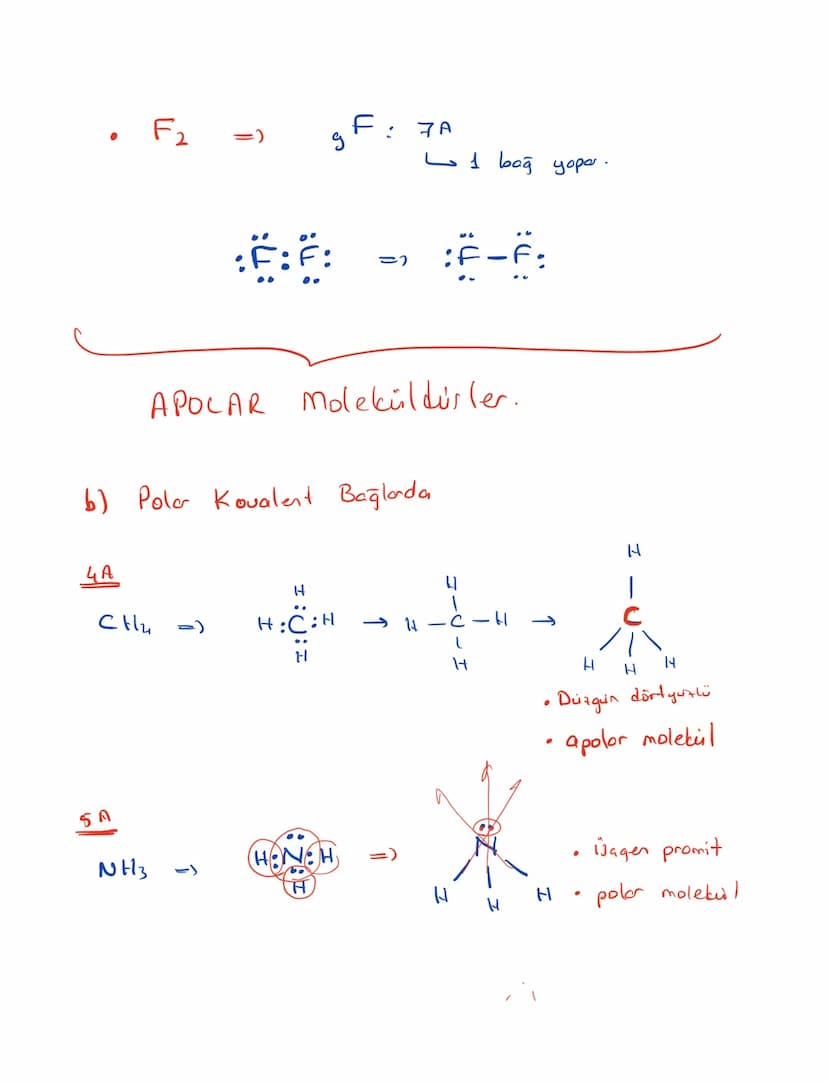 • F₂ => ₉F: 7A
↳ 1 bağ yapar.
:F:F: => :F-F:
APOLAR Moleküldürler.
b) Polar Kovalent Bağlarda
4A
H
H
H
CH₄ => H:C:H → H-C-H → C
H
H
H H H
• Düzgün dörtyüzlü
• apolar molekül
5A
NH₃ => H:N:H => N
H
H H H
• üçgen promit
• polar molekül